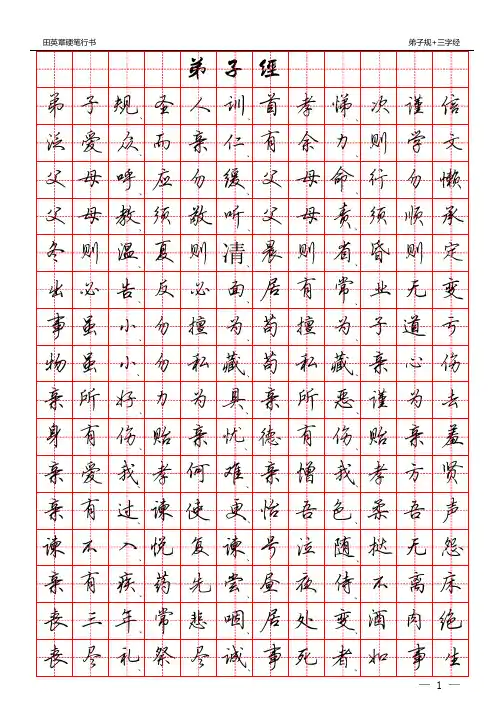 田英章硬笔行书 弟子规+三字经
弟子經
弟子规圣人训首孝悌次谨信
泛爱众而亲仁有余力则学文
父母呼应勿缓父母命行勿懒
父母教须敬听父母责须顺承
冬则温夏则清晨则省昏则定
出必告反必面居有常业无变
事虽小勿擅为苟擅为子道亏
物虽小勿私藏苟私藏亲心伤
亲所好力为具亲所恶谨为去
身有伤贻亲忧德有伤贻亲羞
亲爱我孝何难亲憎我孝方贤
亲有过谏使更怡吾色柔吾声
谏不入悦复谏号泣随挞无怨
亲有疾药先尝昼夜侍不离床
丧三年常悲咽居处变酒肉绝
丧尽礼祭尽诚事死者如事生
— 1